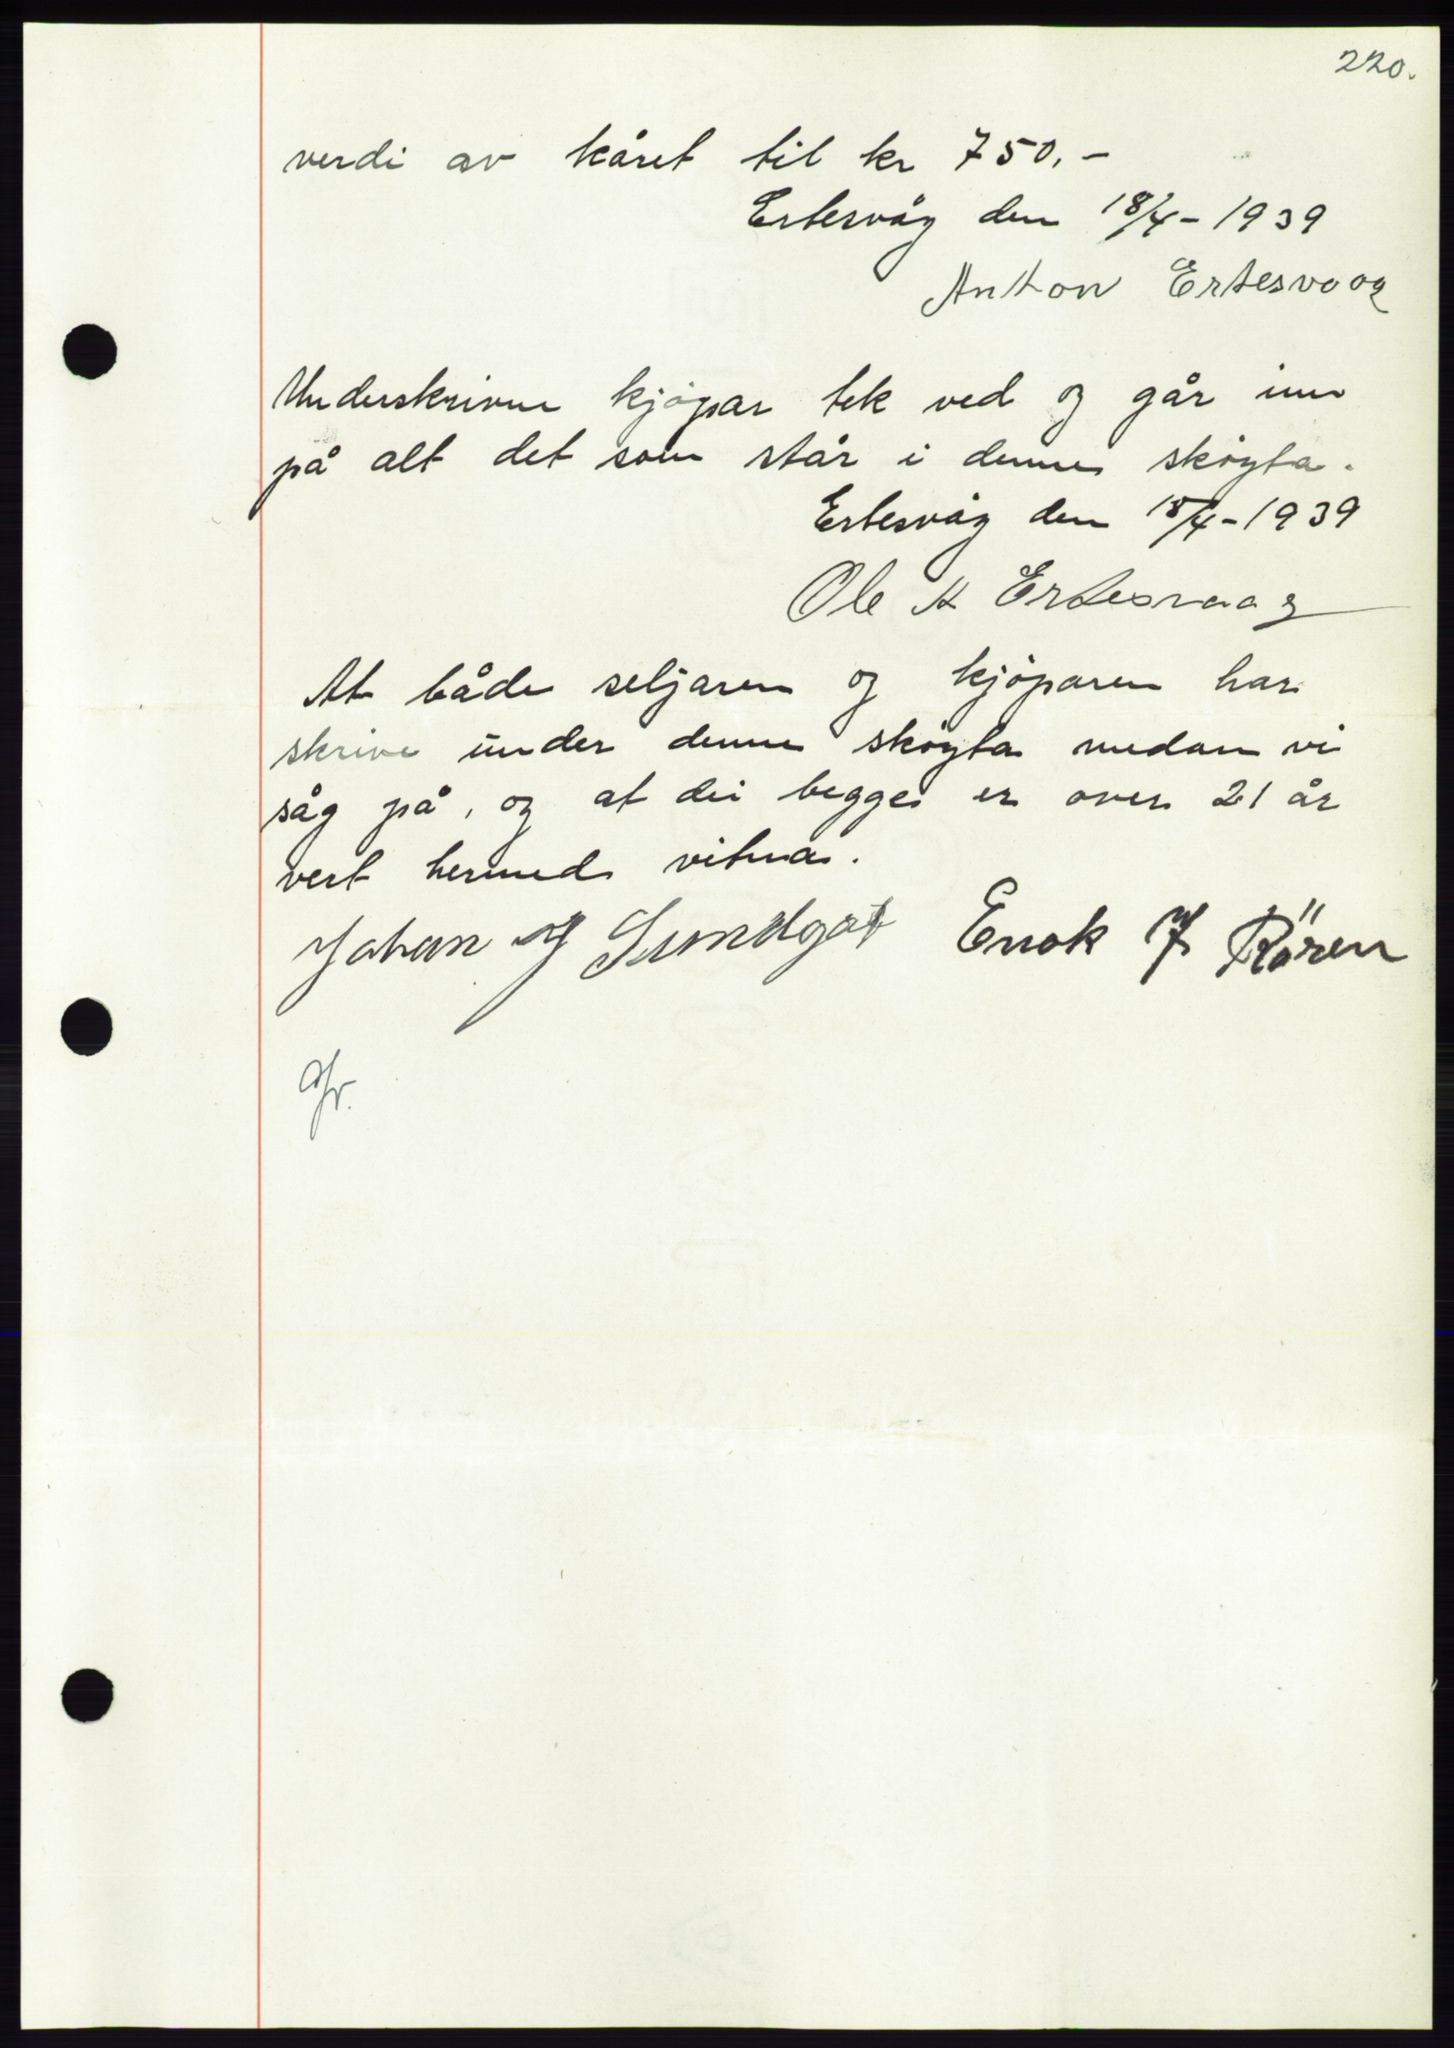 220.
verdi av kåret til kr 750.-
Ertesvåg den 18/4-1939
Anton Ertesvaag
Underskrivne kjöpar tek ved og går inn
på alt det som står i denne sköyta.
Ertesvåg den 18/4-1939
Ole A Ertesvaag
At både seljaren og kjöparen har
skrive under denne sköyta medan vi
såg på, og at dei begge er over 21 år
vert hermed vitna.
Johan J Sundgot Enok J Rören